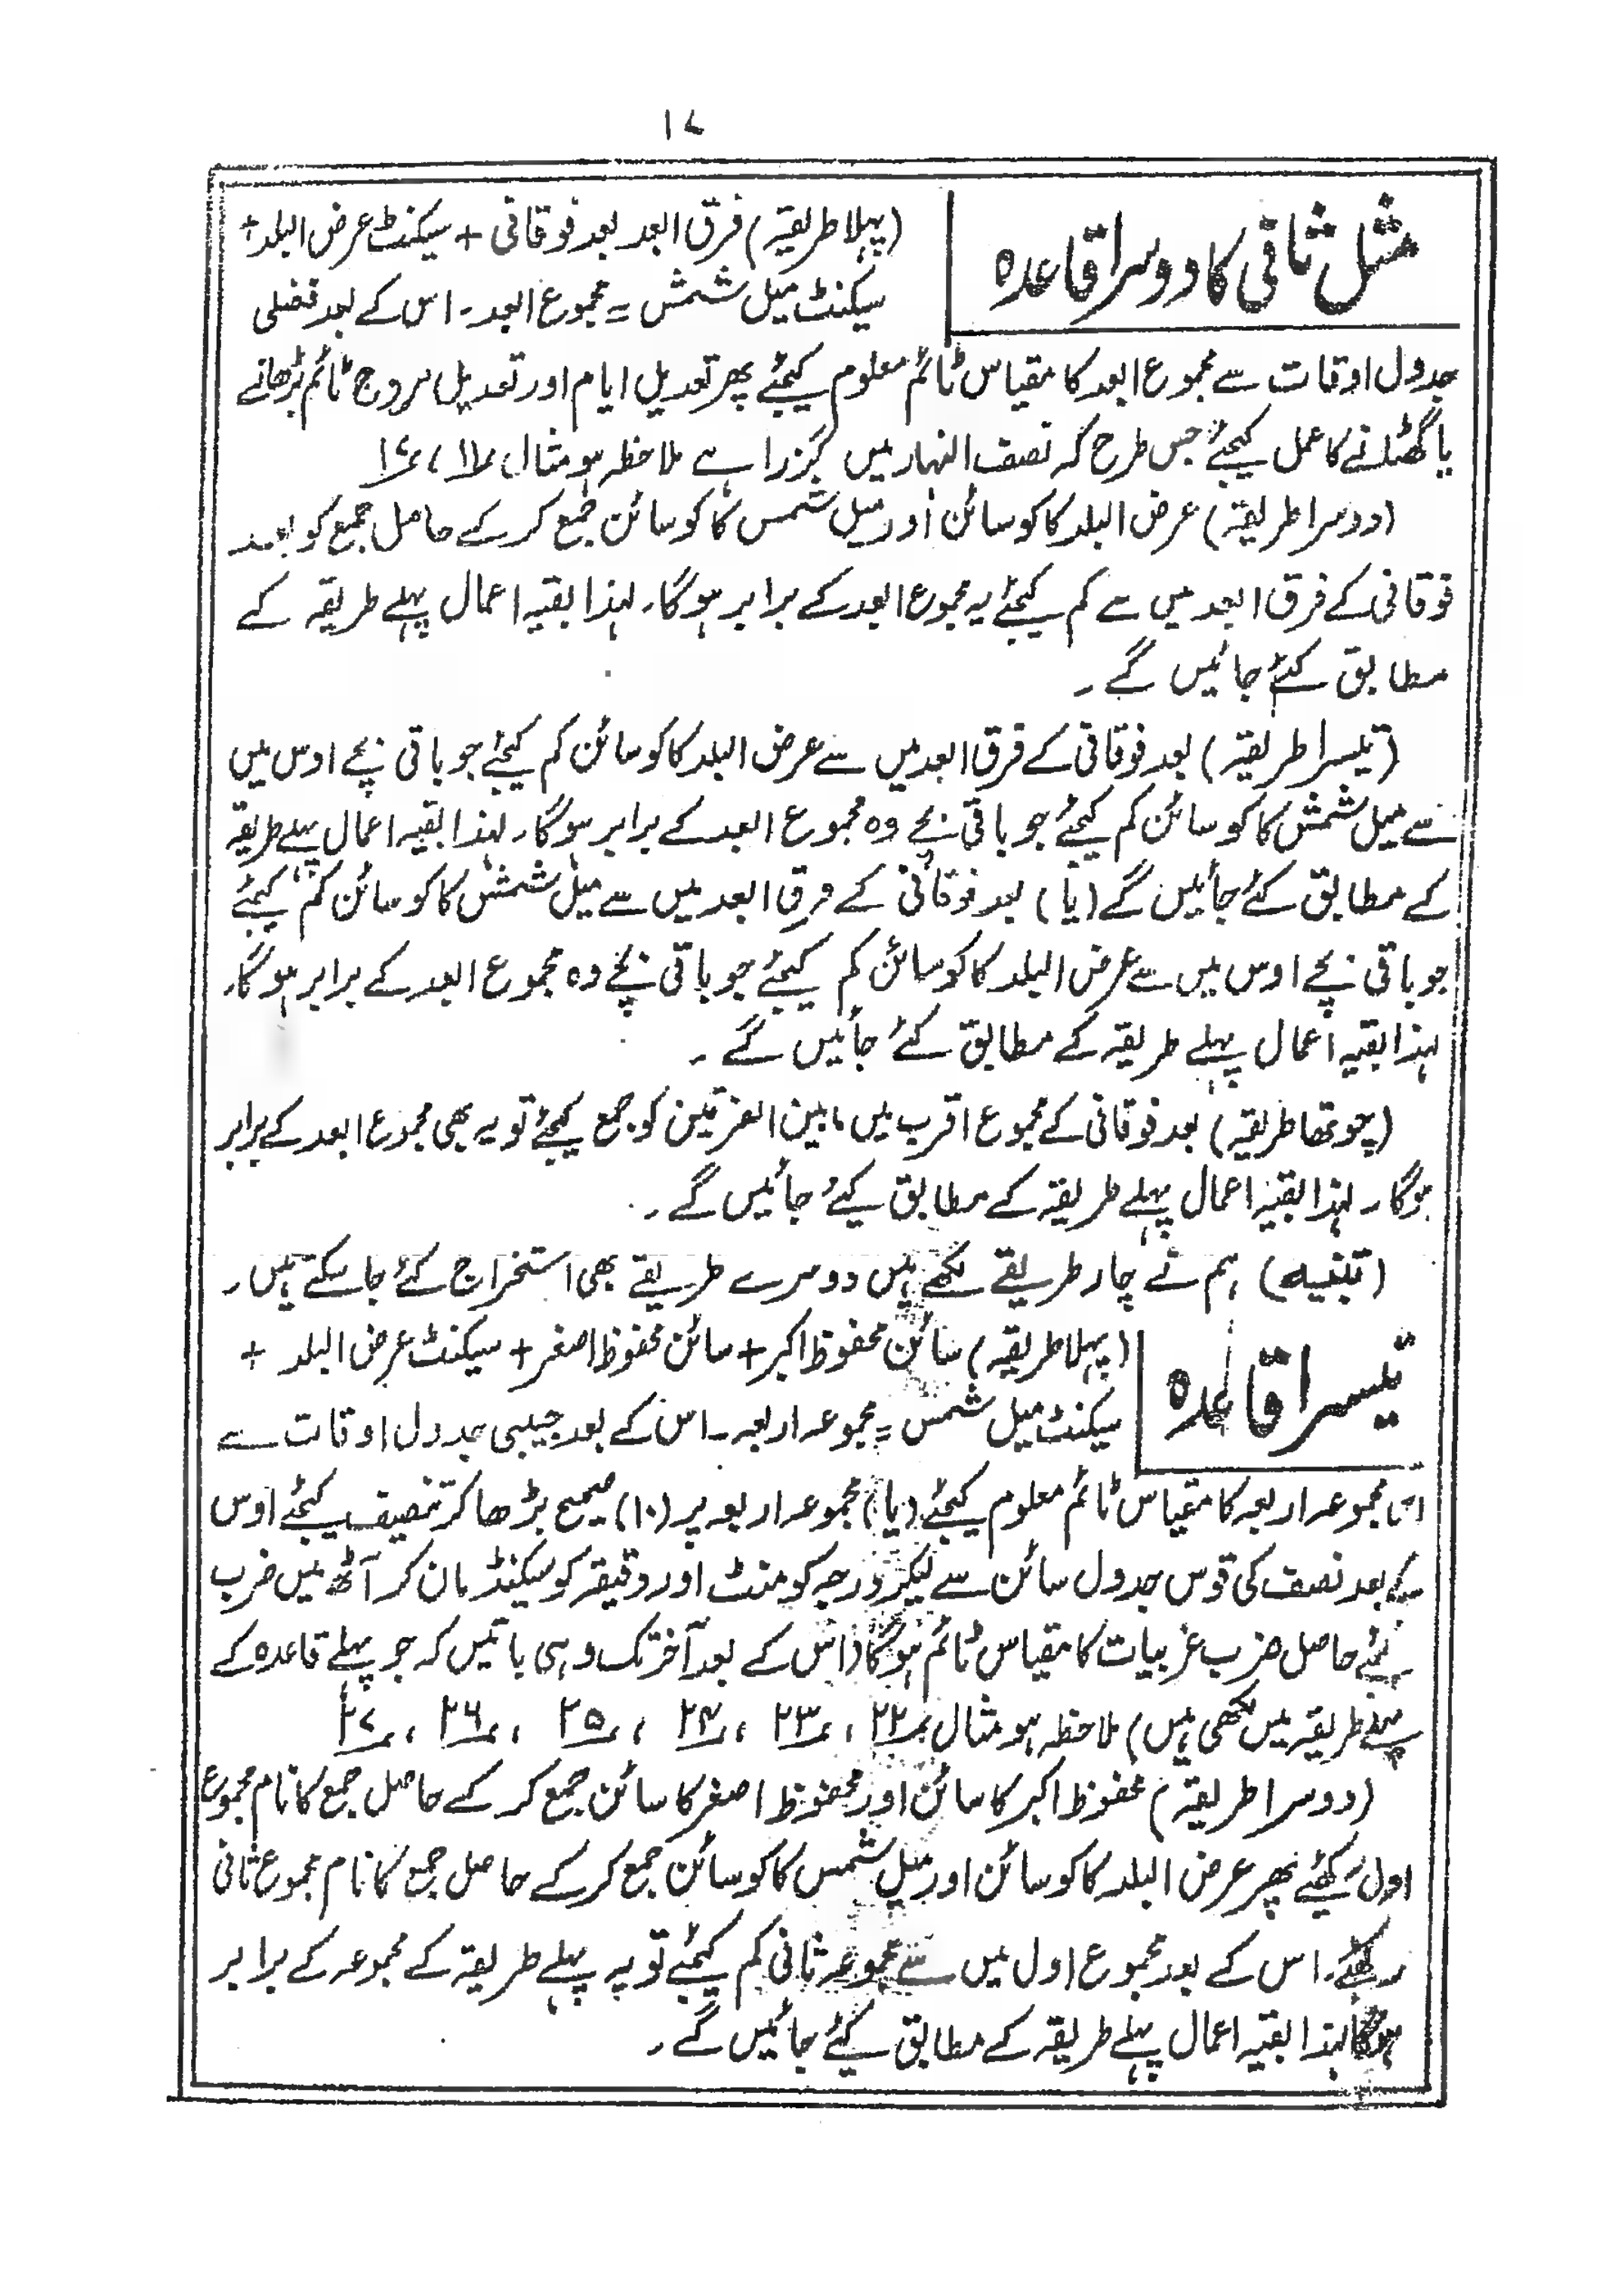 ۱۷
مثل ثانی کا دوسرا قاعدہ
(پہلا طریقہ) فرق ابعد بعد فوقانی + سیکنٹ عرض البلد +
سیکنٹ میل شمس = مجموع ابعد۔ اس کے بعد فضلی
جدول اوقات سے مجموع ابعد کا مقیاس ٹائم معلوم کیجئے پھر تعدیل ایام اور تعدیل مروج ٹائم بڑھانے
یا گھٹانے کا عمل کیجئے جس طرح کہ نصف النہار میں گزرا ہے ملاحظہ ہو مثال
(دوسرا طریقہ) عرض البلد کا کوسائن اور میل شمس کا کوسائن جمع کر کے حاصل جمع کو بعد
فوقانی کے فرق ابعد میں سے کم کیجئے یہ مجموع ابعد کے برابر ہوگا۔ لہذا بقیہ اعمال پہلے طریقہ کے
مطابق کئے جائیں گے۔
(تیسرا طریقہ) بعد فوقانی کے فرق ابعد میں سے عرض البلد کا کوسائن کم کیجئے جو باقی بچے اوس میں
سے میل شمس کا کوسائن کم کیجئے جو باقی بچے وہ مجموع ابعد کے برابر ہوگا۔ لہذا بقیہ اعمال پہلے طریقہ
کے مطابق کئے جائیں گے (یا) بعد فوقانی کے فرق ابعد میں سے میل شمس کا کوسائن کم کیجئے
جو باقی بچے اوس میں سے عرض البلد کا کوسائن کم کیجئے جو باقی بچے وہ مجموع ابعد کے برابر ہوگا۔
لہذا بقیہ اعمال پہلے طریقہ کے مطابق کئے جائیں گے۔
(چوتھا طریقہ) بعد فوقانی کے مجموع اقرب میں مابین الفرقین کو جمع کیجئے تو یہ بھی مجموع ابعد کے برابر
ہوگا۔ لہذا بقیہ اعمال پہلے طریقہ کے مطابق کیئے جائیں گے۔
(تنبیہ) ہم نے چار طریقے لکھے ہیں دوسرے طریقے بھی استخراج کئے جا سکتے ہیں۔
تیسرا قاعدہ
(پہلا طریقہ) سائن محفوظ اکبر + سائن محفوظ اصغر + سیکنٹ عرض البلد +
سیکنٹ میل شمس = مجموعہ اربعہ۔ اس کے بعد جیبی جدول اوقات سے
اس مجموعہ اربعہ کا مقیاس ٹائم معلوم کیجئے (یا) مجموعہ اربعہ پر (۱۰) صحیح بڑھا کر تنصیف کیجئے اوس
کے بعد نصف کی قوس جدول سائن سے لیکر درجہ کو منٹ اور دقیقہ کو سیکنڈ مان کر آٹھ میں ضرب
کیجئے حاصل ضرب غربیات کا مقیاس ٹائم ہوگا (اس کے بعد آخر تک وہی باتیں کہ جو پہلے قاعدہ کے
پہلے طریقہ میں لکھی ہیں) ملاحظہ ہو مثال ۲۲، ۲۳، ۲۴، ۲۵، ۲۶، ۲۷
(دوسرا طریقہ) محفوظ اکبر کا سائن اور محفوظ اصغر کا سائن جمع کر کے حاصل جمع کا نام مجموع
اول رکھئے پھر عرض البلد کا کوسائن اور میل شمس کا کوسائن جمع کر کے حاصل جمع کا نام مجموع ثانی
رکھئے۔ اس کے بعد مجموع اول میں سے مجموعہ ثانی کم کیجئے تو یہ پہلے طریقہ کے مجموعہ کے برابر
ہوگا لہذا بقیہ اعمال پہلے طریقہ کے مطابق کیئے جائیں گے۔